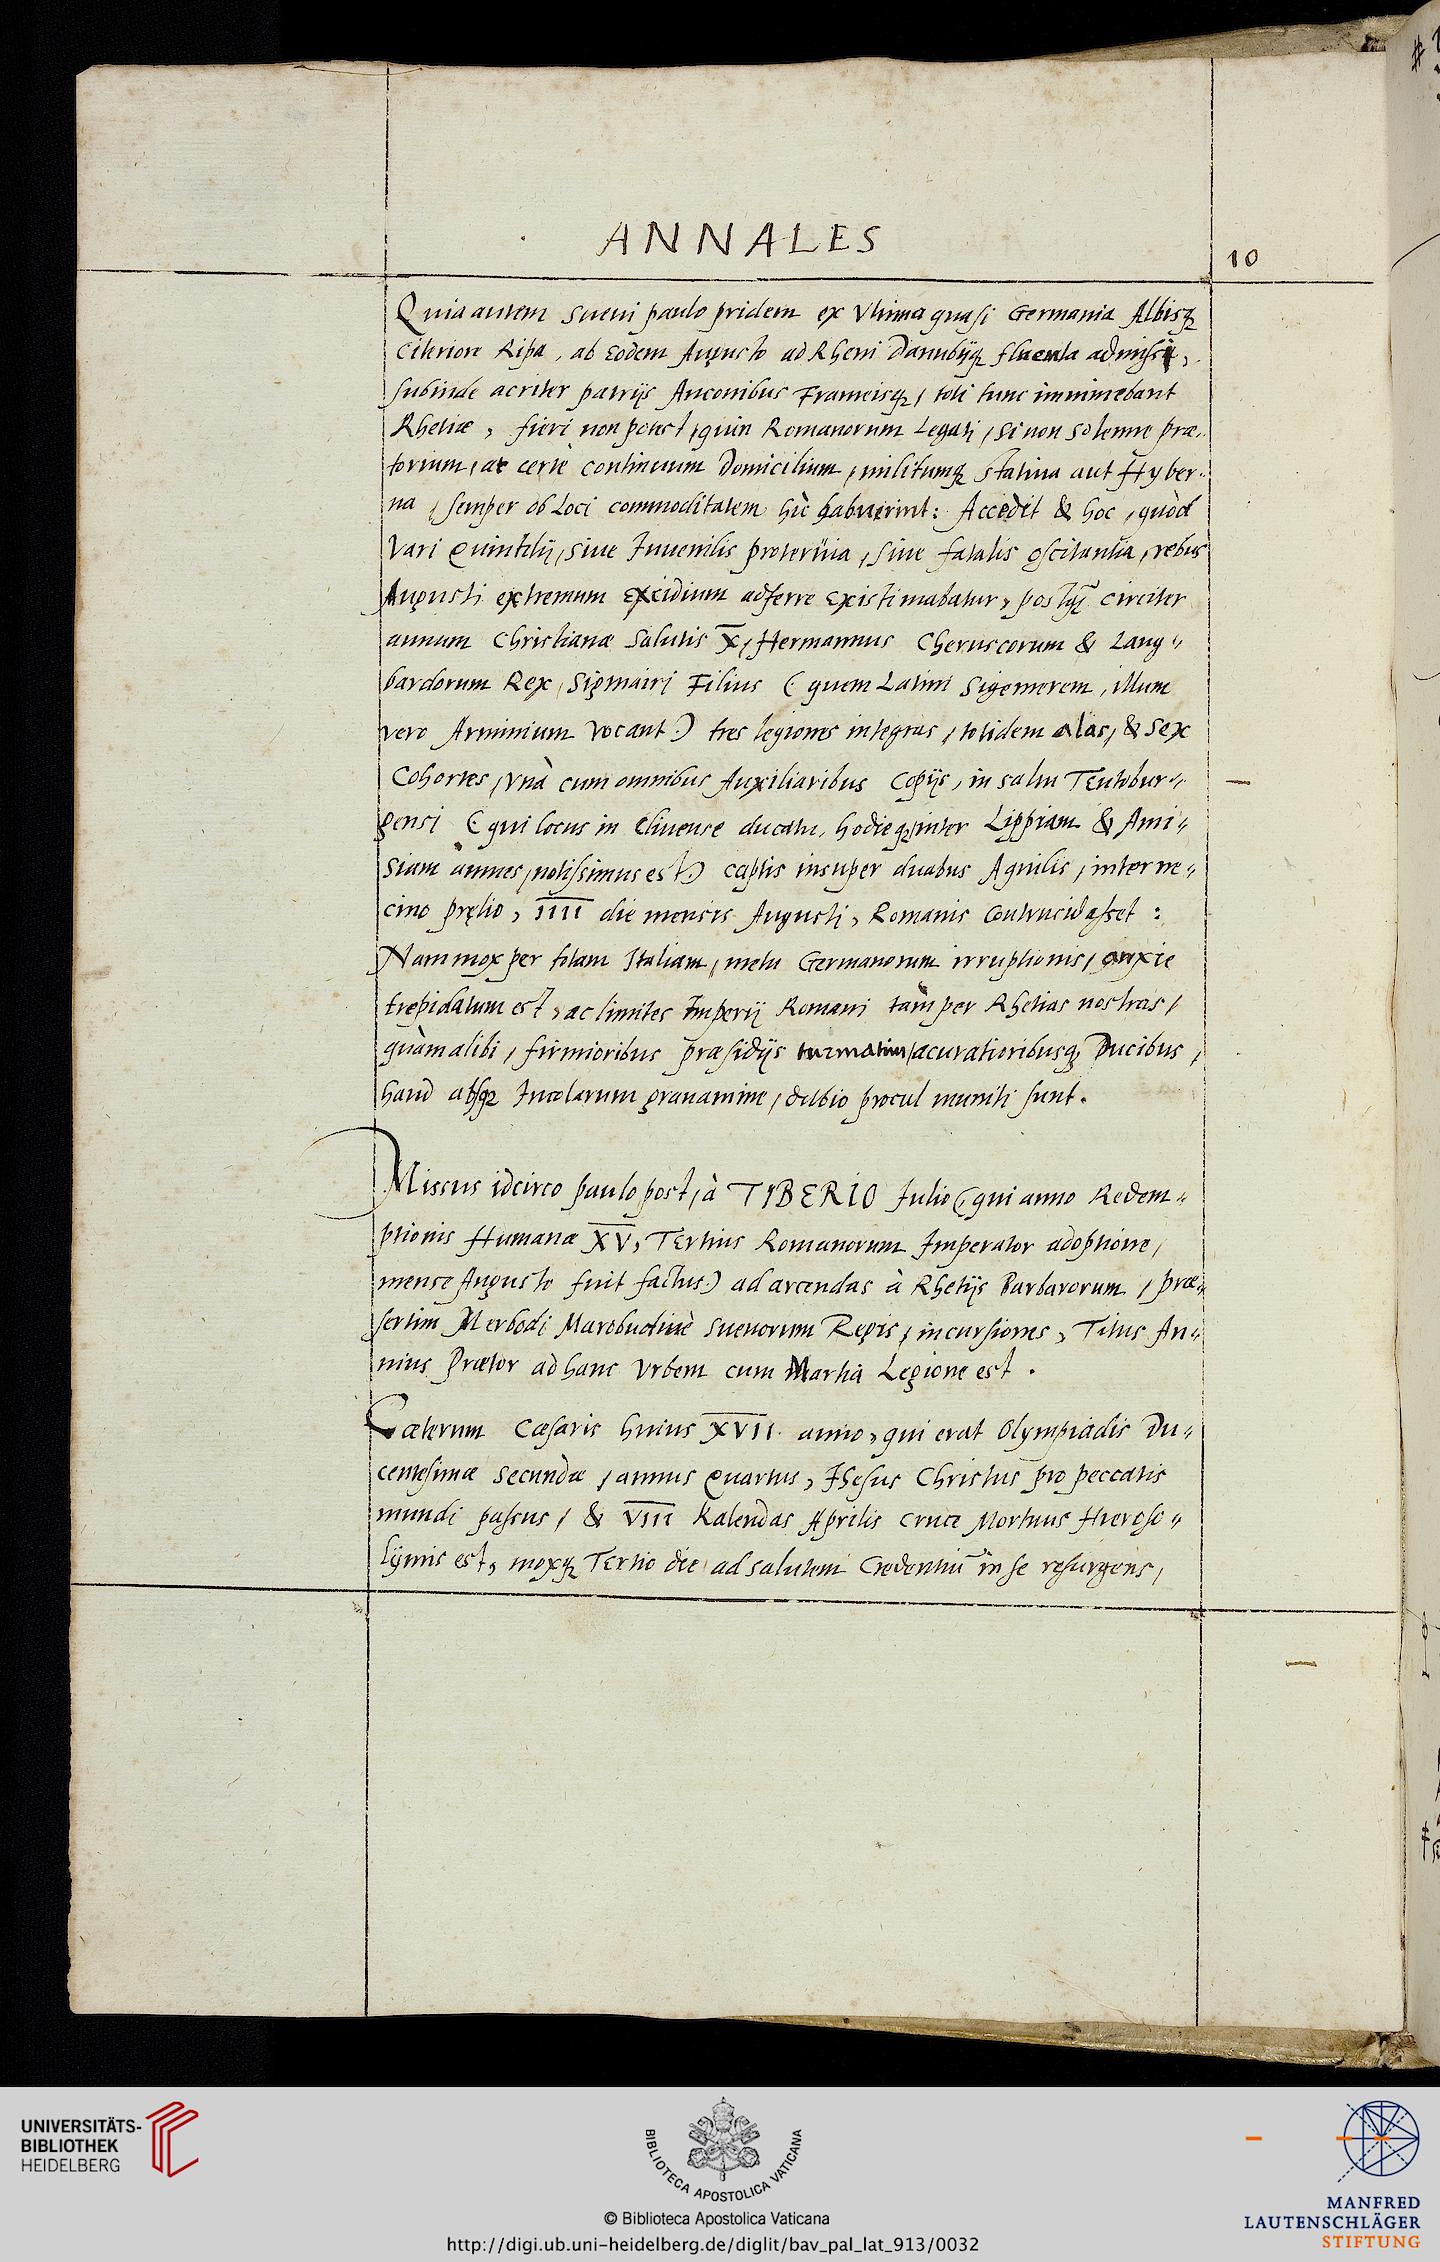 ANNALES
10
Quia autem Sueui paulo pridem ex Vltima quasi Germania Albisq́
Citeriore Ripa, ab Eodem Augusto ad Rheni Danubijq́ fluenta admissi,
subinde acriter patrijs Anconibus Frameisq́, toti tunc imminebant
Rhetiæ, fieri non potest, quin Romanorum Legati, si non Solenne præ„
torium, at certè continuum Domicilium, militumq́ Statiua aut Hyber„
na, semper ob Loci commoditatem hîc habuerint: Accedit & hoc, quòd
Vari Quintilij, siue Iuuenilis proteruia, siue fatalis oscitantia, rebus
Augusti extremum Excidium adferre Existimabatur, postq̃ circiter
annum Christianæ Salutis X, Hermannus Cheruscorum & Lang„
bardorum Rex, Sigmairi Filius (quem Latini Sigemerem, illum
vero Arminium vocant) tres legiones integras, totidem alas, & Sex
Cohortes, Vnà cum omnibus Auxiliaribus Copijs, in saltu Teutobur„
gensi (qui locus in Cliuense ducatu, hodieq́, inter Lippiam & Ami„
siam amnes, notissimus est) captis insuper duabus Aquilis, interne„
cino pręlio, IIII die mensis Augusti, Romanis Contrucidasset:
Nam mox per totam Italiam, metu Germanorum irruptionis, anxie
trepidatum est, ac limites Imperij Romani tàm per Rhetias nostras,
quàm alibi, firmioribus præsidijs turmatim, acuratioribusq́ Ducibus,
haud absq́ Incolarum grauamine, dubio procul muniti sunt.
Missus idcirco paulo post, à TIBERIO Iulio (qui anno Redem„
ptionis Humanæ XV, Tertius Romanorum Imperator adoptione,
mense Augusto fuit factus) ad arcendas à Rhetijs Barbarorum, præ„
sertim Merbodi Marobuduiuè Sueuorum Regis, incursiones, Titus An„
nius Prætor ad hanc Vrbem cum Martia Legione est.
Cæterum Cæsaris huius XVII anno, qui erat Olympiadis Du„
centesimæ Secundæ, annus Quartus, IHesus Christus pro peccatis
mundi passus, & VIII Kalendas Aprilis Cruce Mortuus Hieroso„
lÿmis est, moxq́ Tertio die ad salutem Credentiũ in se resurgens,
UNIVERSITÄTS-
BIBLIOTHEK
HEIDELBERG
BIBLIOTECA APOSTOLICA VATICANA
© Biblioteca Apostolica Vaticana
http://digi.ub.uni-heidelberg.de/diglit/bav_pal_lat_913/0032
MANFRED
LAUTENSCHLÄGER
STIFTUNG